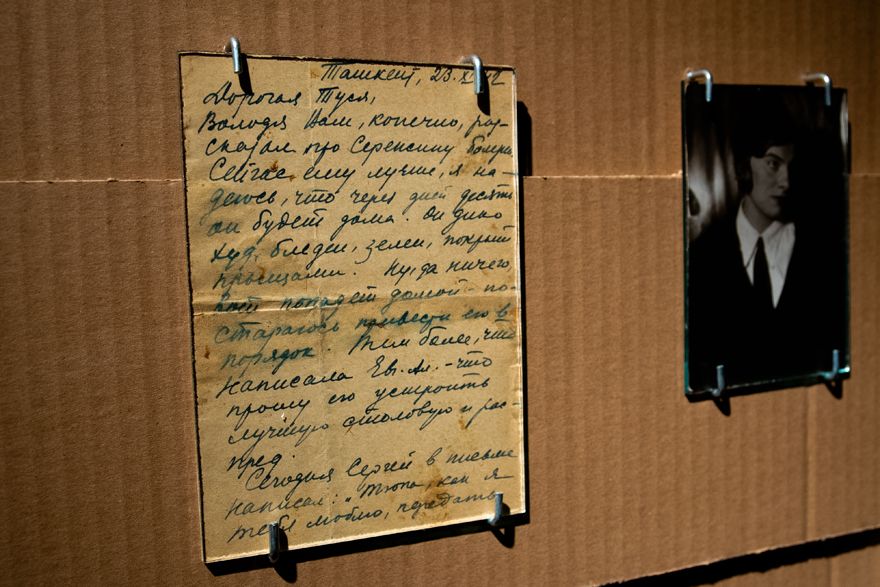 Ташкент, 23.XII 42
Дорогая Туся,
Володя Вам, конечно, рас-
сказал про Сережину болезнь
Сейчас ему лучше, я на-
деюсь, что через дней десять
он будет дома. Он дико
худ, бледен, зелен, покрыт
прыщами. Ну, да ничего
вот попадет домой - по-
стараюсь привести его в
порядок. Тем более, что
написала Евг. Ал. - что
прошу его устроить
лучшую столовую и рас-
пред.
Сегодня Сергей в письме
написал: "Тюпа, как я
тебя люблю, передать